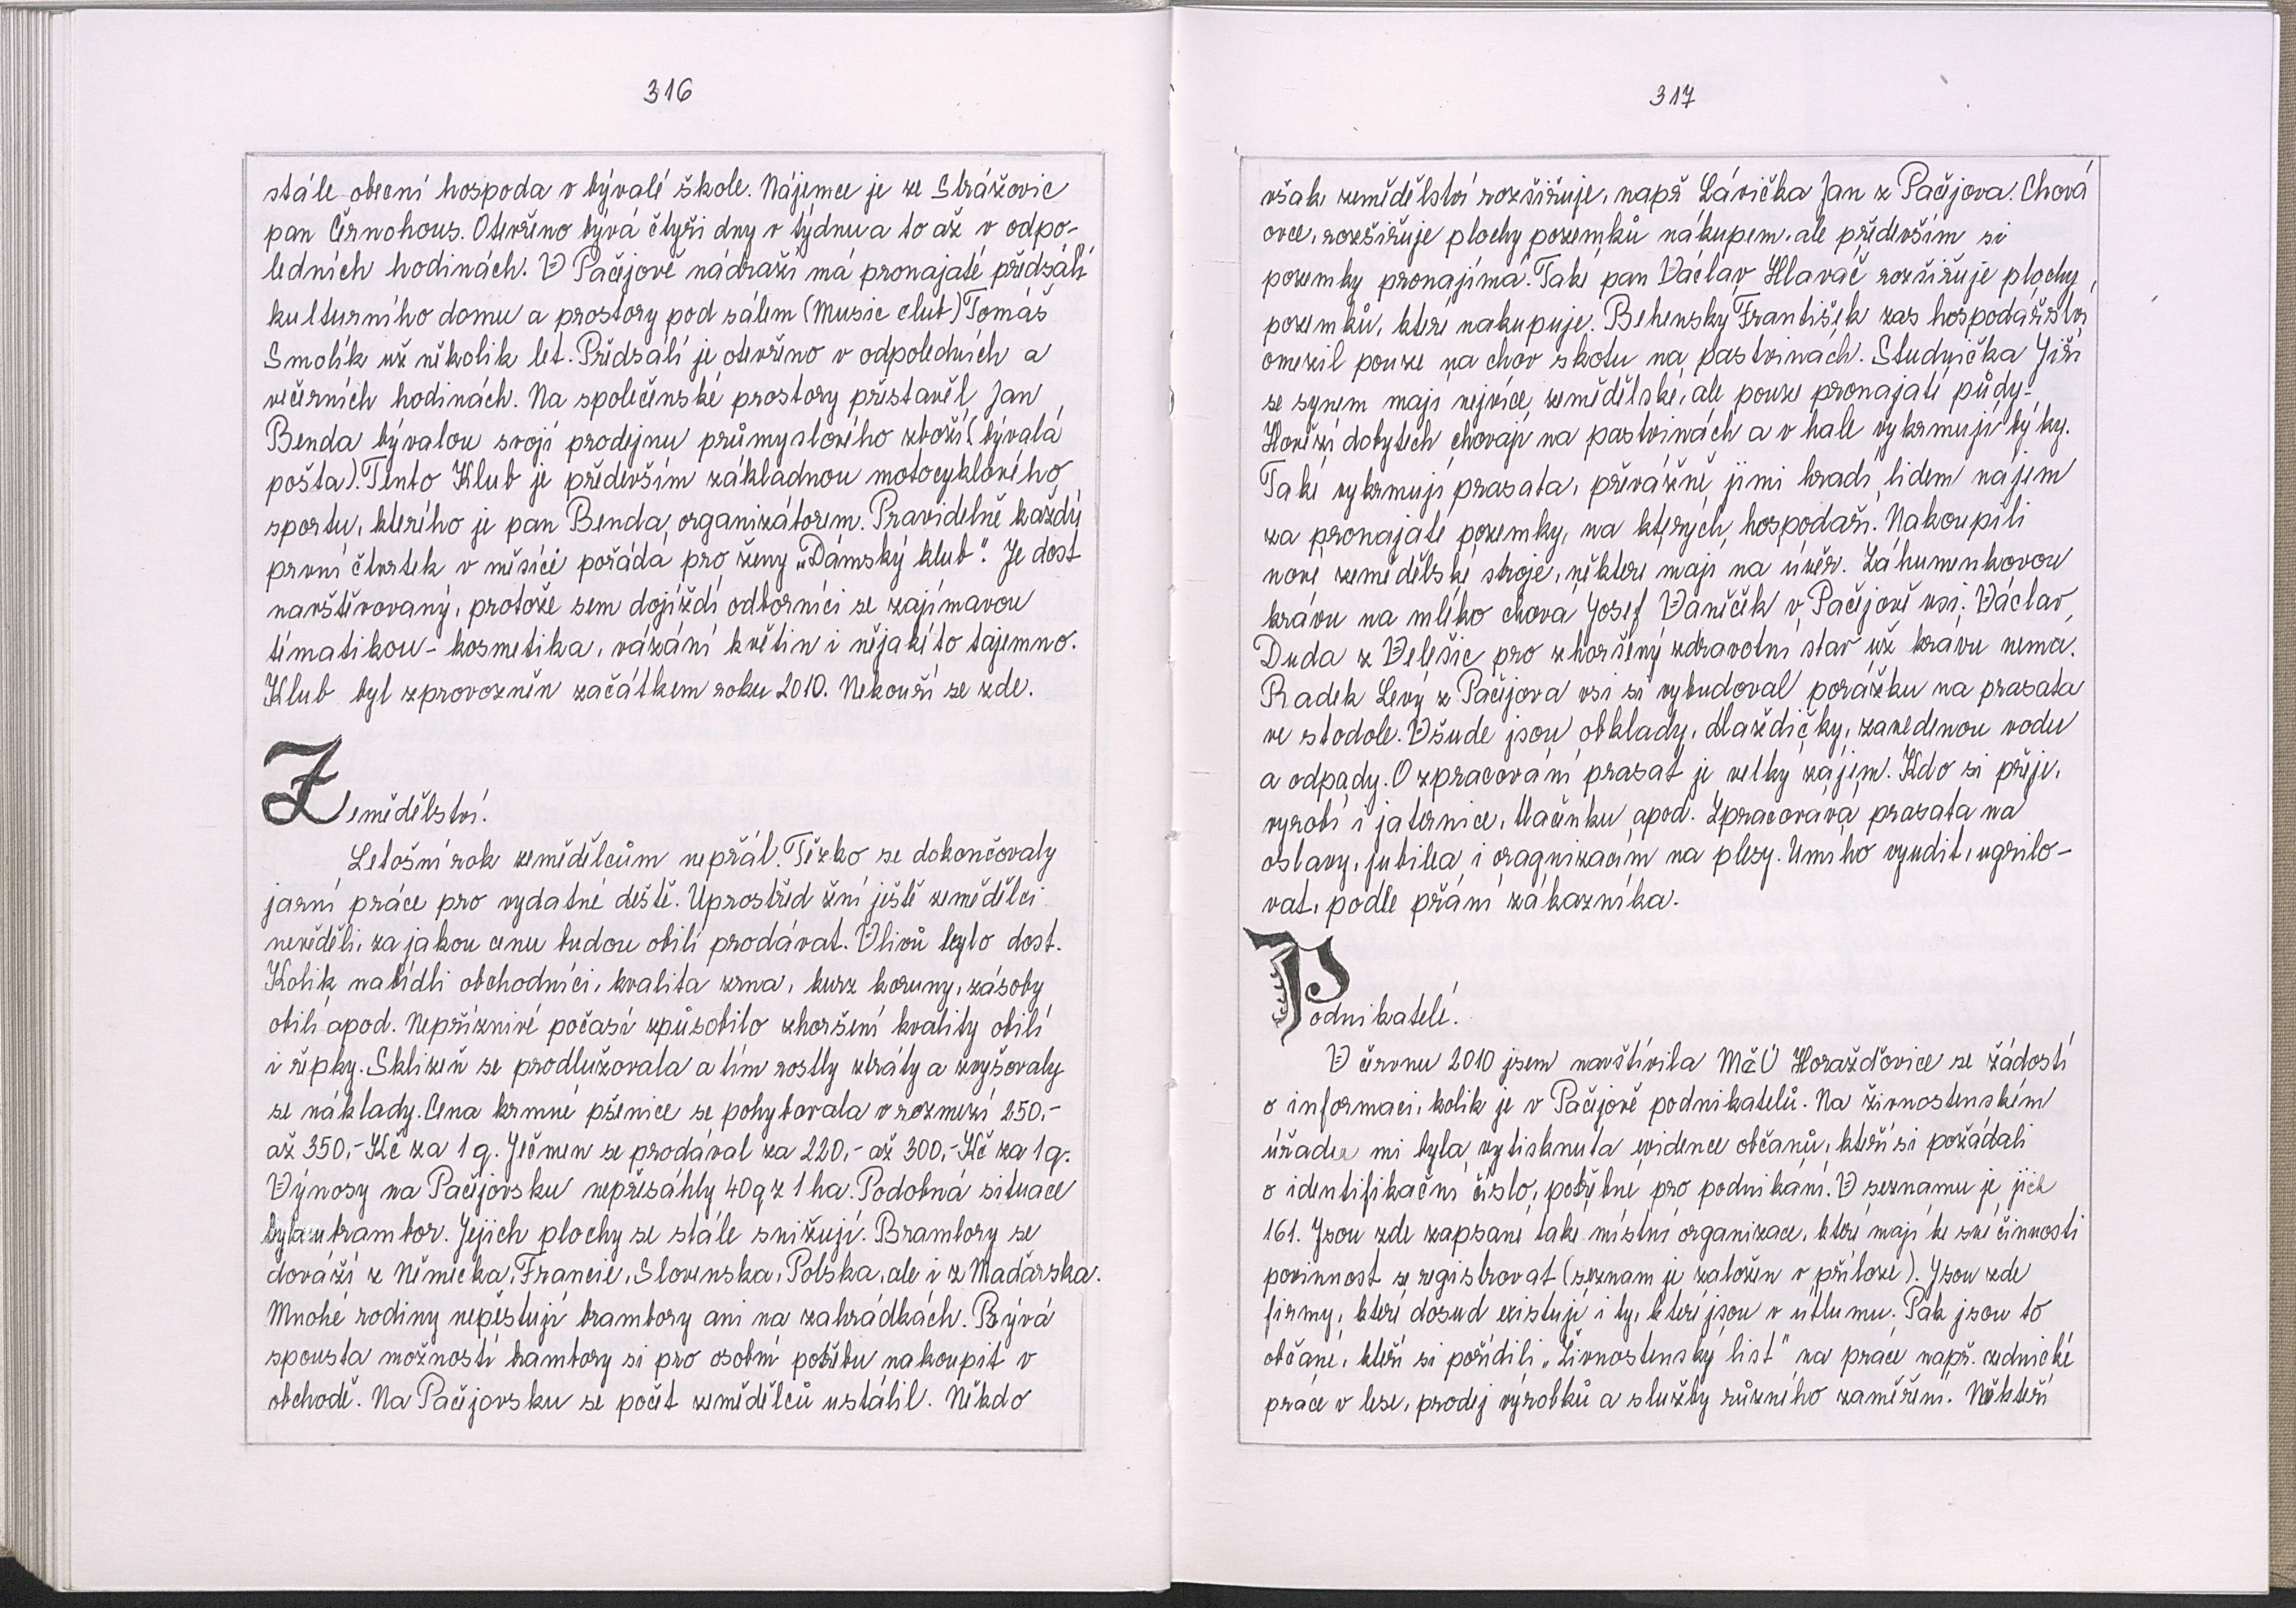 316
stále obecní hospoda v bývalé škole. Nájemce je ze Strážovic
pan Černohous. Otevřeno bývá čtyři dny v týdnu a to až v odpo-
ledních hodinách. V Pačejově nádraží má pronajaté předsálí
kulturního domu a prostory pod sálem (Music club) Tomáš
Smolík už několik let. Předsálí je otevřeno v odpoledních a
večerních hodinách. Na společenské prostory přestavěl Jan
Benda bývalou svoji prodejnu průmyslového zboží (bývalá
pošta). Tento Klub je především základnou motocyklového
sportu, kterého je pan Benda organizátorem. Pravidelně každý
první čtvrtek v měsíci pořádá pro ženy „Dámský klub“. Je dost
navštěvovaný, protože sem dojíždí odborníci se zajímavou
tématikou - kosmetika, vázání květin i nějakéto tajemno.
Klub byl zprovozněn začátkem roku 2010. Nekouří se zde.
Zemědělství.
Letošní rok zemědělcům nepřál. Těžko se dokončovaly
jarní práce pro vydatné deště. Uprostřed žní ještě zemědělci
nevěděli, za jakou cenu budou obilí prodávat. Vlivů bylo dost.
Kolik nabídli obchodníci, kvalita zrna, kurz koruny, zásoby
obilí apod. Nepříznivé počasí způsobilo zhoršení kvality obilí
i řepky. Sklizeň se prodlužovala a tím rostly ztráty a zvyšovaly
se náklady. Cena krmné pšenice se pohybovala v rozmezí 250,-
až 350,- Kč za 1 q. Ječmen se prodával za 220,- až 300,- Kč za 1 q.
Výnosy na Pačejovsku nepřesáhly 40 q z 1 ha. Podobná situace
byla u brambor. Jejich plochy se stále snižují. Brambory se
dováží z Německa, Francie, Slovenska, Polska, ale i z Maďarska.
Mnohé rodiny nepěstují brambory ani na zahrádkách. Bývá
spousta možností brambory si pro osobní potřebu nakoupit v
obchodě. Na Pačejovsku se počet zemědělců ustálil. Někdo
317
však zemědělství rozšiřuje, např Lávička Jan z Pačejova. Chová
ovce, rozšiřuje plochy pozemků nákupem, ale především si
pozemky pronajímá. Také pan Václav Hlaváč rozšiřuje plochy
pozemků, které nakupuje. Behenský František zas hospodářství
omezil pouze na chov skotu na pastvinách. Studnička Jiří
se synem mají nejvíce zemědělské, ale pouze pronajaté půdy.
Hovězí dobytek chovají na pastvinách a v hale vykrmují býky.
Také vykrmují prasata, převážně jimi hradí lidem nájem
za pronajaté pozemky, na kterých hospodaří. Nakoupili
nové zemědělské stroje, některé mají na úvěr. Záhumenkovou
krávu na mléko chová Josef Vaněček v Pačejově vsi. Václav
Duda z Velešic pro zhoršený zdravotní stav už krávu nemá.
Radek Levý z Pačejova vsi si vybudoval porážku na prasata
ve stodole. Všude jsou obklady, dlaždičky, zavedenou vodu
a odpady. O zpracování prasat je velký zájem. Kdo si přeje,
vyrobí i jaternice, tlačenku apod. Zpracovává prasata na
oslavy, jubilea i oragnizacím na plesy. Umí ho vyudit, ugrilo-
vat, podle přání zákazníka.
Podnikatelé.
V červnu 2010 jsem navštívila MěÚ Horažďovice se žádostí
o informaci, kolik je v Pačejově podnikatelů. Na živnostenském
úřadu mi byla vytisknuta evidence občanů, kteří si požádali
o identifikační číslo, potřebné pro podnikání. V seznamu je jich
161. Jsou zde zapsané také místní organizace, které mají ke své činnosti
povinnost se registrovat (seznam je založen v příloze). Jsou zde
firmy, které dosud existují i ty, které jsou v útlumu. Pak jsou to
občané, kteří si pořídili „Živnostenský list“ na práce např. zednické
práce v lese, prodej výrobků a služby různého zaměření. Někteří